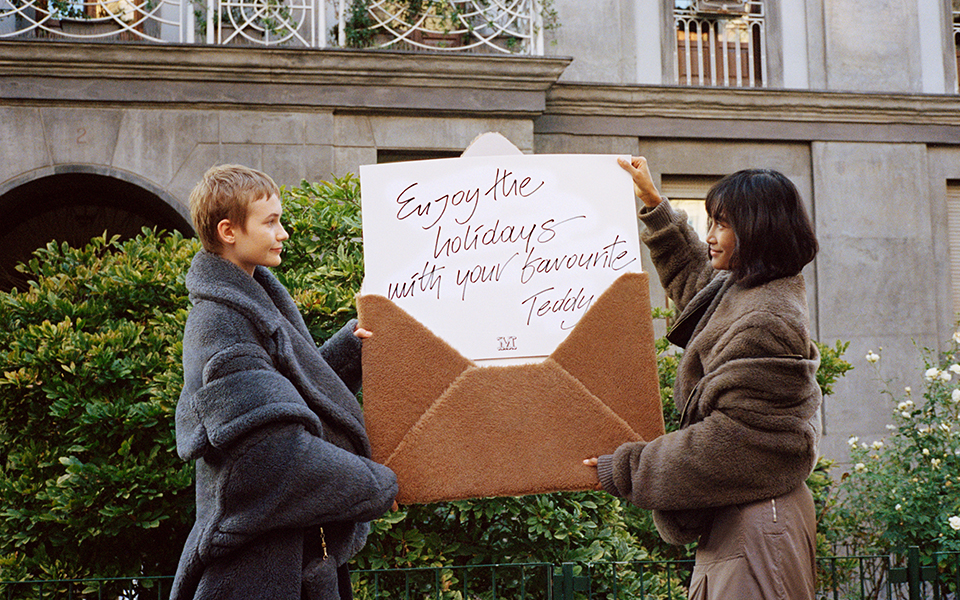 Enjoy the
holidays
with your favourite
Teddy
M
2